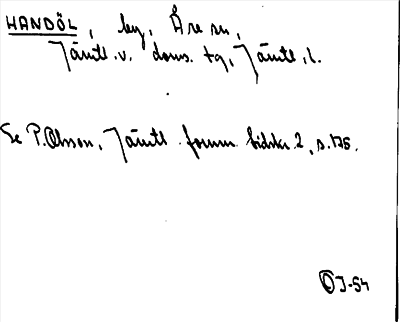 HANDÖL, by, Åre sn,
Jämtl. v. doms. tg, Jämtl. l.
Se P. Olsson, Jämtl. fornm. tidskr. 2, s. 126.
OJ-54